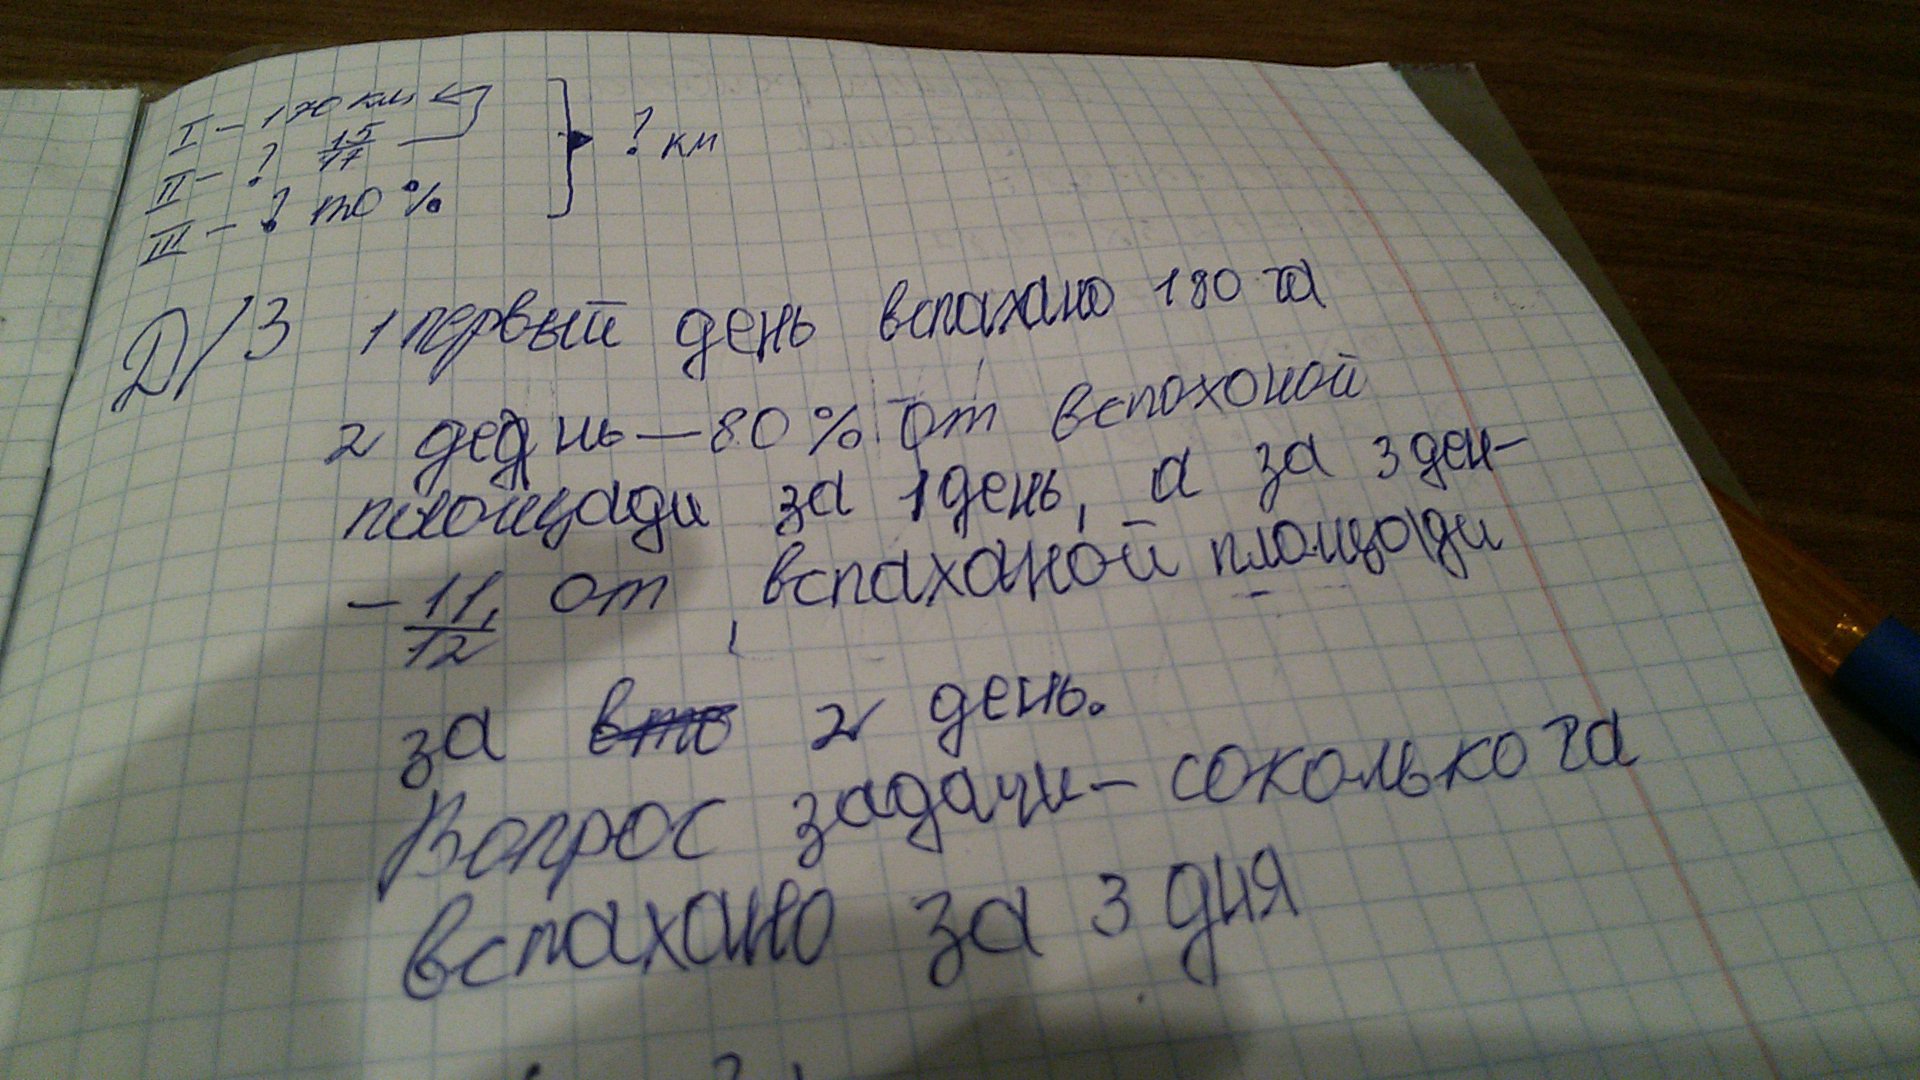 I – 170 км
II – ? 15/17
III – ? то %
? км
Д/З 1 первый день вспахано 180 га
2 деднь – 80 % от вспохоной
площади за 1 день, а за 3 ден-
– 11/12 от вспаханой площади
за вто 2 день.
Вопрос задачи – соколько га
вспахано за 3 дня